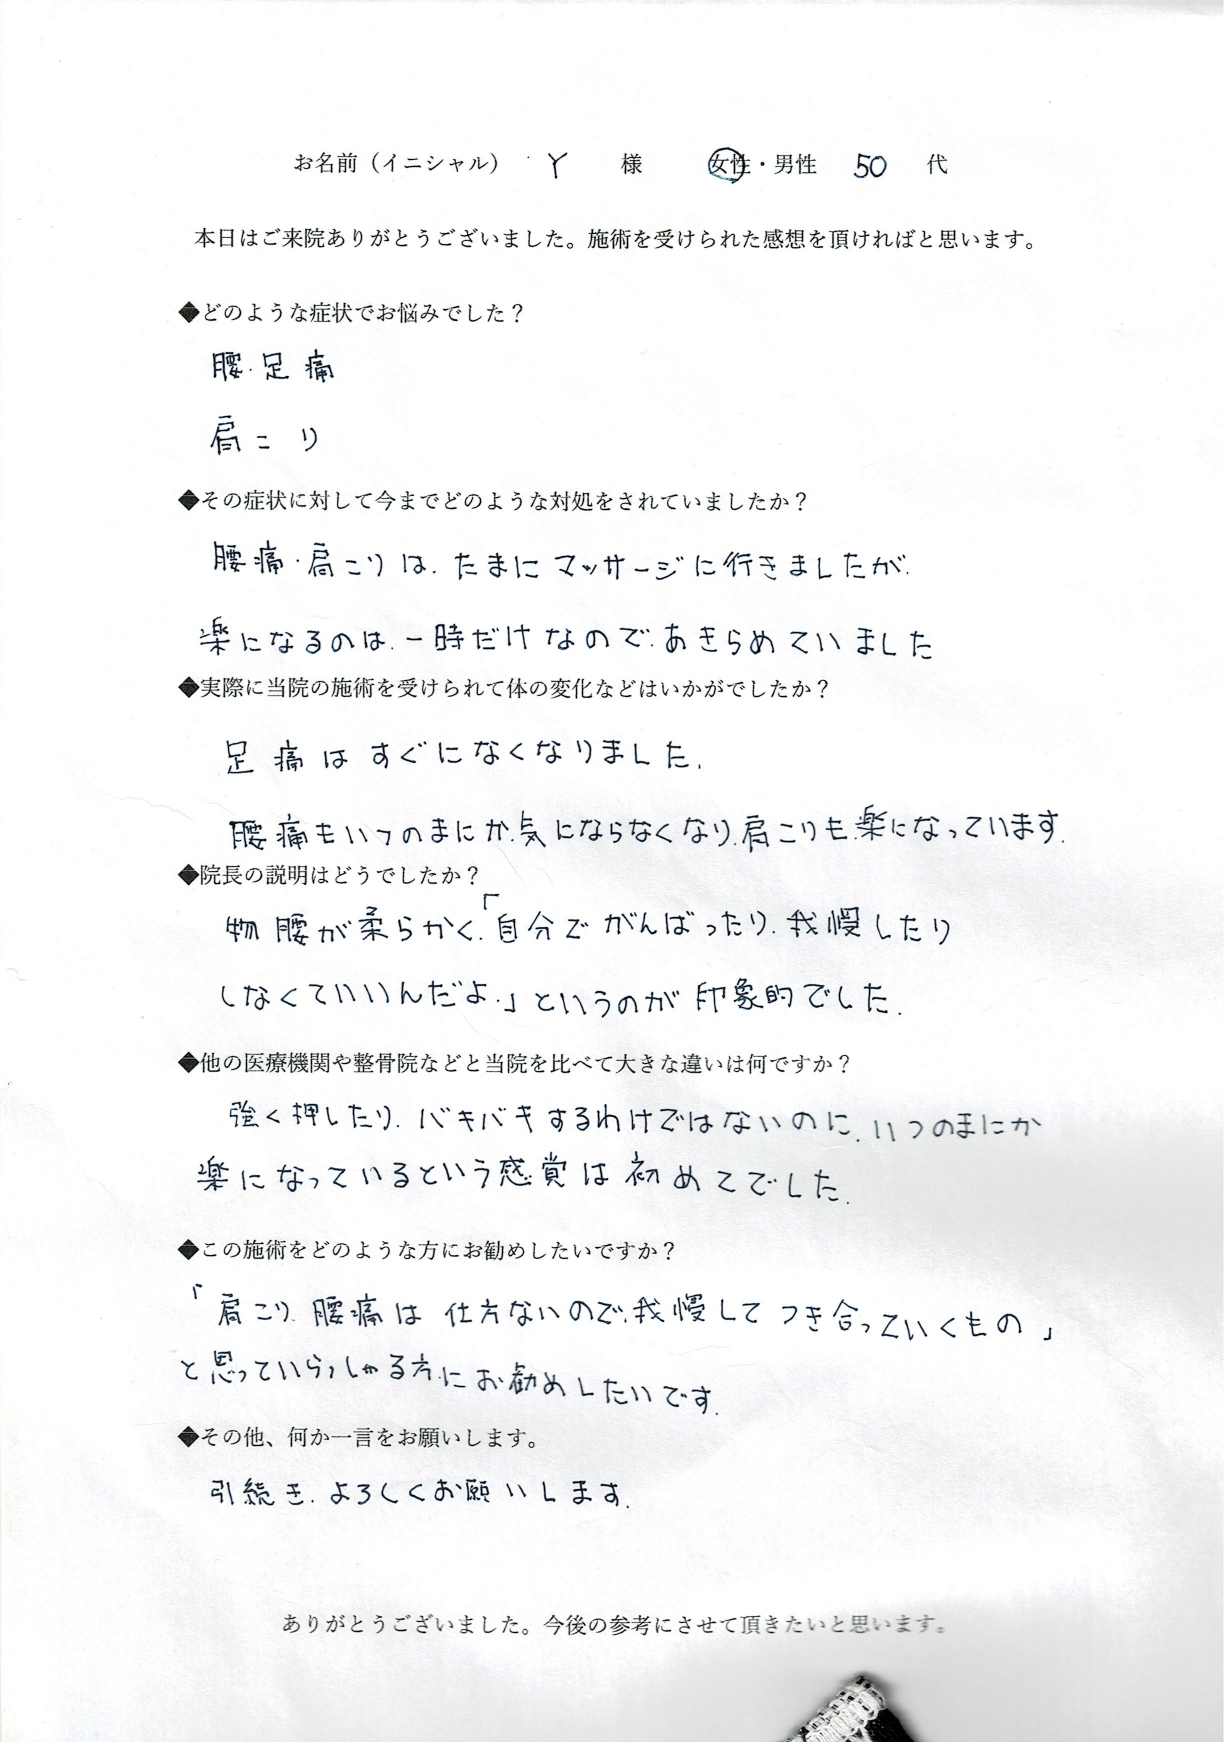 お名前（イニシャル） Y 様 女性・男性 50 代
本日はご来院ありがとうございました。施術を受けられた感想を頂ければと思います。
◆どのような症状でお悩みでした？
腰・足痛
肩こり
◆その症状に対して今までどのような対処をされていましたか？
腰痛・肩こりは、たまにマッサージに行きましたが、
楽になるのは、一時だけなので、あきらめていました
◆実際に当院の施術を受けられて体の変化などはいかがでしたか？
足痛はすぐになくなりました。
腰痛もいつのまにか、気にならなくなり、肩こりも、楽になっています。
◆院長の説明はどうでしたか？
物腰が柔らかく、「自分でがんばったり、我慢したり
しなくていいんだよ。」というのが印象的でした。
◆他の医療機関や整骨院などと当院を比べて大きな違いは何ですか？
強く押したり、バキバキするわけではないのに、いつのまにか
楽になっているという感覚は初めてでした。
◆この施術をどのような方にお勧めしたいですか？
「肩こり、腰痛は仕方ないので、我慢してつき合っていくもの」
と思っていらっしゃる方に お勧めしたいです。
◆その他、何か一言をお願いします。
引続き、よろしくお願いします。
ありがとうございました。今後の参考にさせて頂きたいと思います。